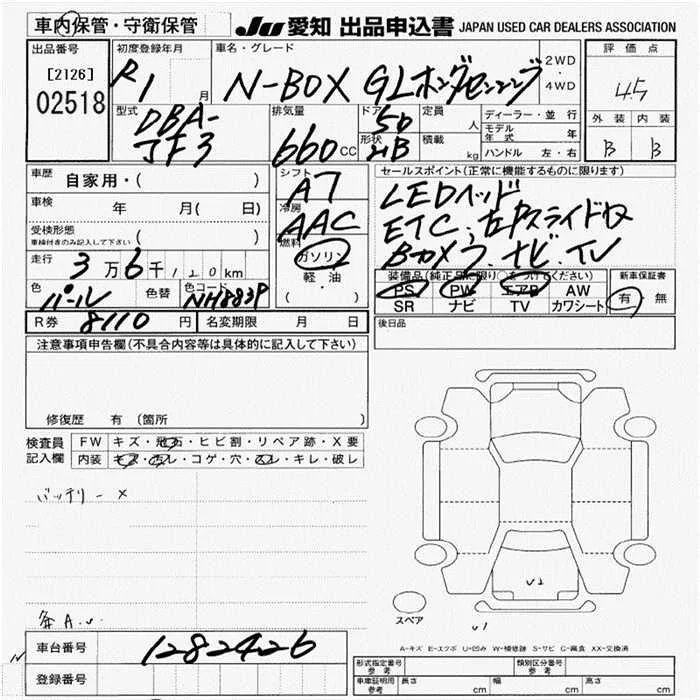 車内保管・守衛保管
JU 愛知 出品申込書 JAPAN USED CAR DEALERS ASSOCIATION
出品番号 初度登録年月 車名・グレード 2WD・4WD 評価点
[2126]
02518
R1 月 N-BOX GLホンダセンシング 4.5
型式 排気量 ドア 定員 人 ディーラー・並行 外装 内装
DBA-
JF3
660cc
5D
形状 HB 積載 kg
モデル年式 年
ハンドル 左・右
B B
車歴 自家用・( )
車検 年 月( 日)
受検形態 車検付きのみ記入して下さい ( )
走行 3万6千120km
色 パール 色替 色コード NH883P
シフト AT
冷房 AAC
燃料 ガソリン
軽・油
( )
セールスポイント(正常に機能するものに限ります)
LEDヘッド
ETC.右Pスライドロ
Bカメラ.ナビ.TV
装備品(純正品に限り○をつけてください) 新車保証書
PS PW エアB AW 有・無
SR ナビ TV カワシート
R券 8110円 名変期限 月 日
後日品
注意事項申告欄(不具合内容等は具体的に記入して下さい)
修復歴 有 (箇所 )
検査員記入欄 FW キズ・飛石・ヒビ割・リペア跡・X要
内装 キズ・汚レ・コゲ・穴・スレ・キレ・破レ
バッテリー ×
U2
U1
スペア
A-キズ E-エクボ U-凹み W-補修跡 S-サビ C-腐食 XX-交換済
車台番号 1282426
登録番号
形式指定番号 参考 類別区分番号 参考
車庫証明用 参考 長さ cm 幅 cm 高さ cm